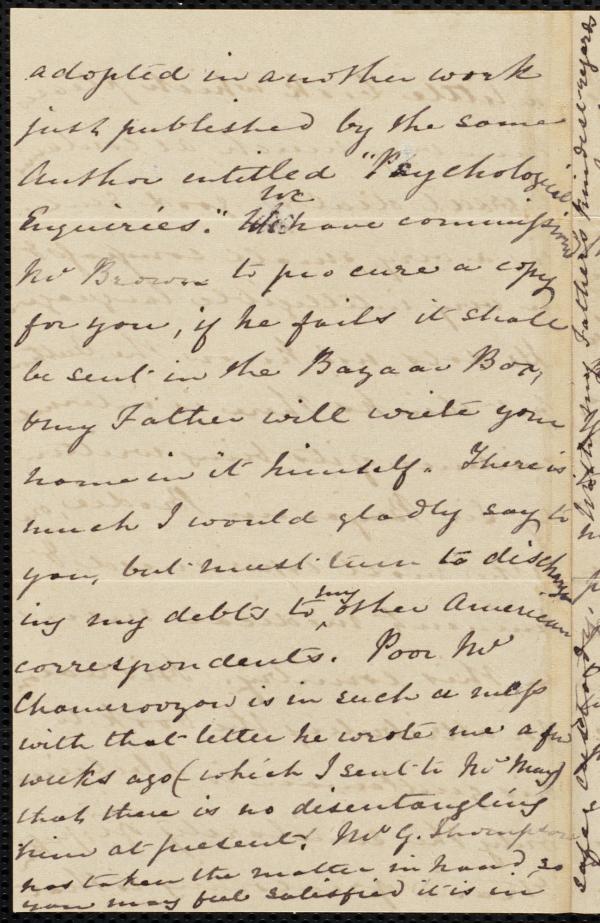 adopted in another work
just published by the same
Author entitled "Psychological
Enquiries." We have commissioned
Mr Brown to procure a copy
for you, if he fails it shall
be sent in the Bazaar Box,
& my Father will write your
name in it himself. There is
much I would gladly say to
you, but must turn to discharg-
ing my debts to my other American
correspondents. Poor Mr
Chamerovzow is in such a mess
with that letter he wrote me a few
weeks ago (which I sent to Mr May)
that there is no disentangling
him at present. Mr G. Thompson
has taken the matter in hand, so
you may feel satisfied it is in
safe custody.
With my Father's kindest regards